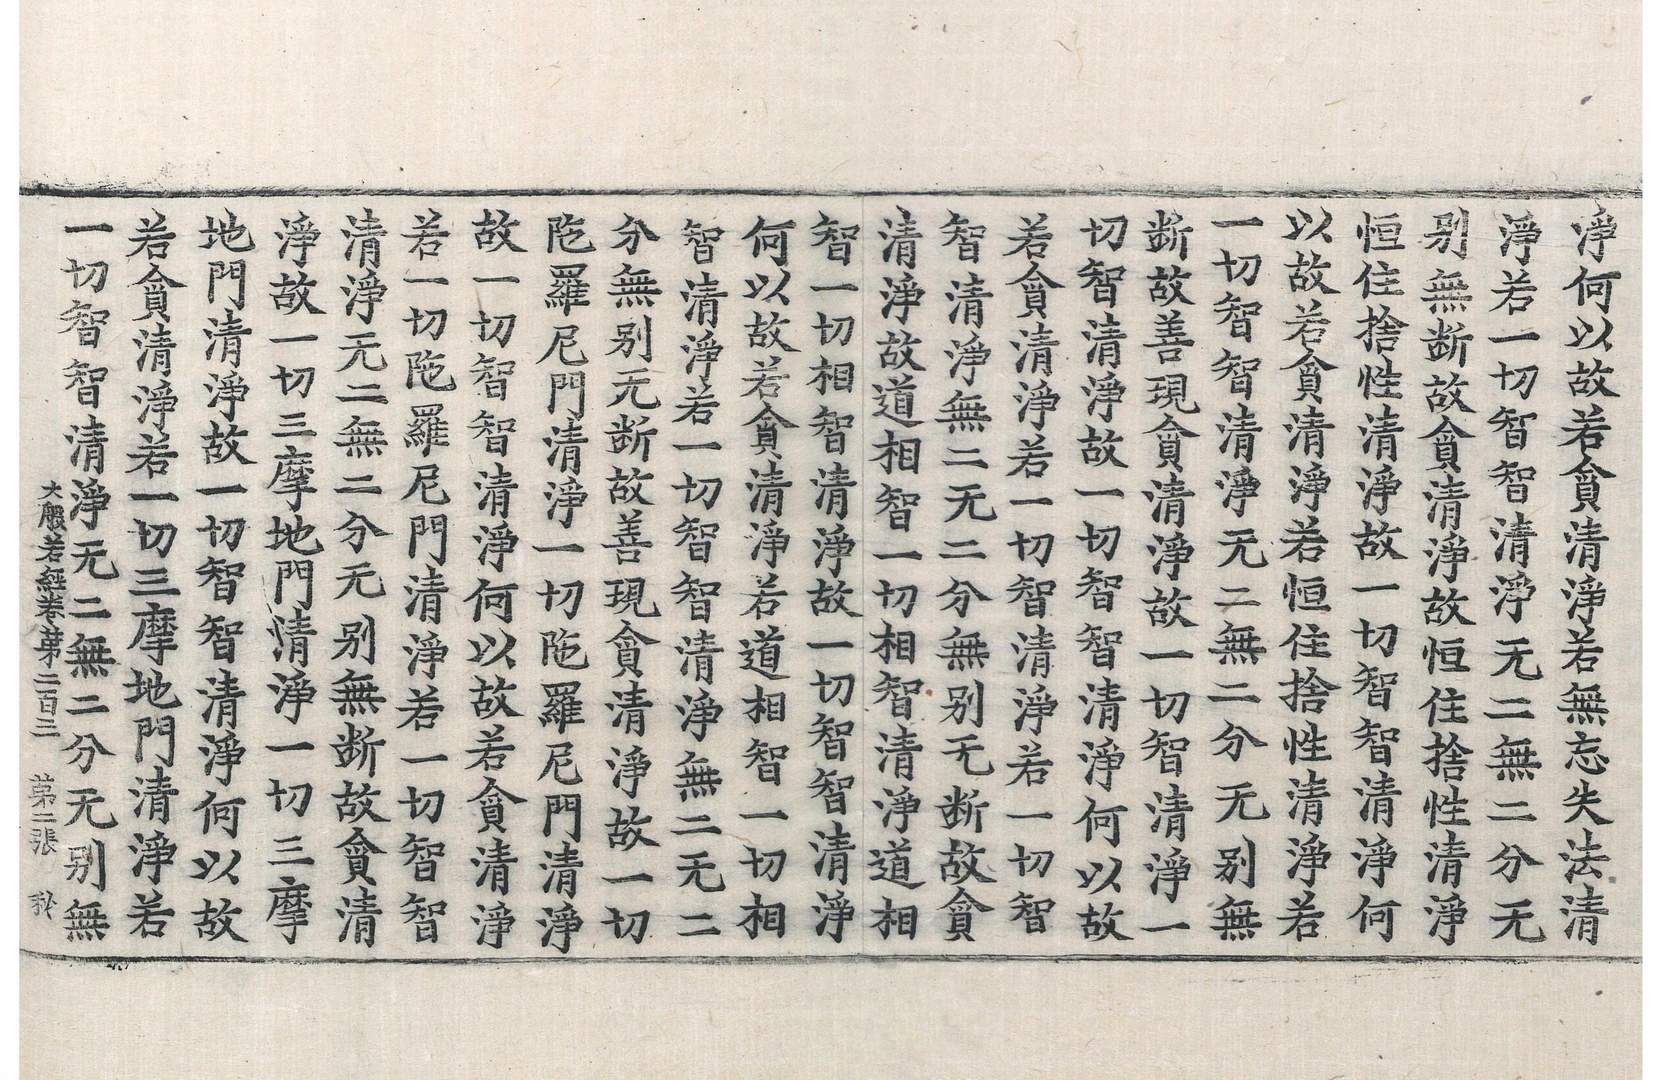 淨何以故若貪清淨若無忘失法清
淨若一切智智清淨无二無二分无
别無断故貪清淨故恒住捨性清淨
恒住捨性清淨故一切智智清淨何
以故若貪清淨若恒住捨性清淨若
一切智智清淨无二無二分无别無
断故善現貪清淨故一切智清淨一
切智清淨故一切智智清淨何以故
若貪清淨若一切智清淨若一切智
智清淨無二无二分無别无断故貪
清淨故道相智一切相智清淨道相
智一切相智清淨故一切智智清淨
何以故若貪清淨若道相智一切相
智清淨若一切智智清淨無二无二
分無别无断故善現貪清淨故一切
陁羅尼門清淨一切陁羅尼門清淨
故一切智智清淨何以故若貪清淨
若一切陁羅尼門清淨若一切智智
清淨无二無二分无别無断故貪清
淨故一切三摩地門清淨一切三摩
地門清淨故一切智智清淨何以故
若貪清淨若一切三摩地門清淨若
一切智智清淨无二無二分无别無
大般若經卷苐二百三 苐二張 秘